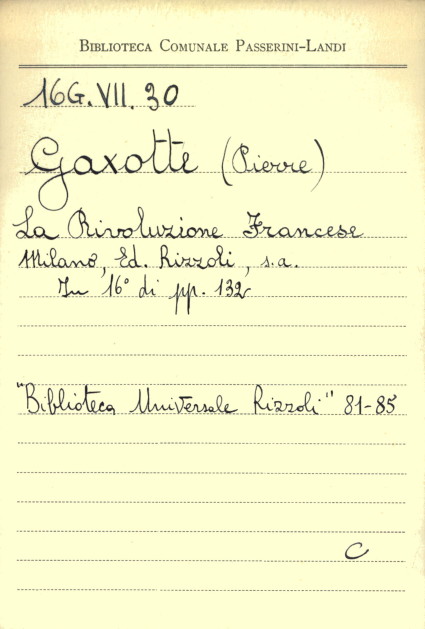 BIBLIOTECA COMUNALE PASSERINI-LANDI
16G. VII. 30
Gaxotte (Pierre)
La Rivoluzione Francese
Milano, Ed. Rizzoli, s.a.
In 16° di pp. 132
"Biblioteca Universale Rizzoli" 81-85
C